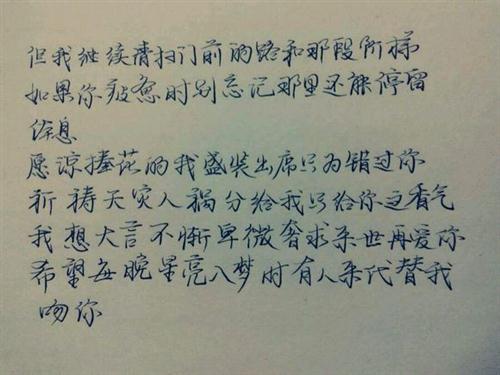 但我继续清扫门前的路和那段阶梯
如果你疲惫时别忘记那里还能停留
休息
愿谅捧花的我盛装出席只为错过你
祈祷天灾人祸分给我只给你这香气
我想大言不惭卑微奢求来世再爱你
希望每晚星亮入梦时有人来代替我
吻你